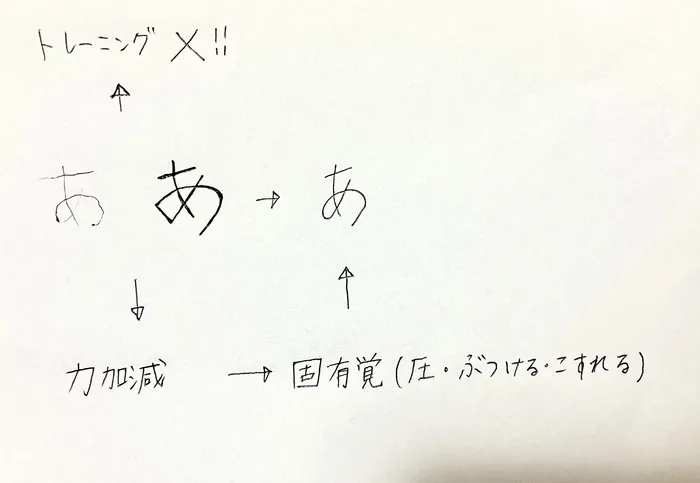 トレーニング ×!!
↑
あ あ → あ
↓ ↑
力加減 → 固有覚(圧・ぶつける・こすれる)